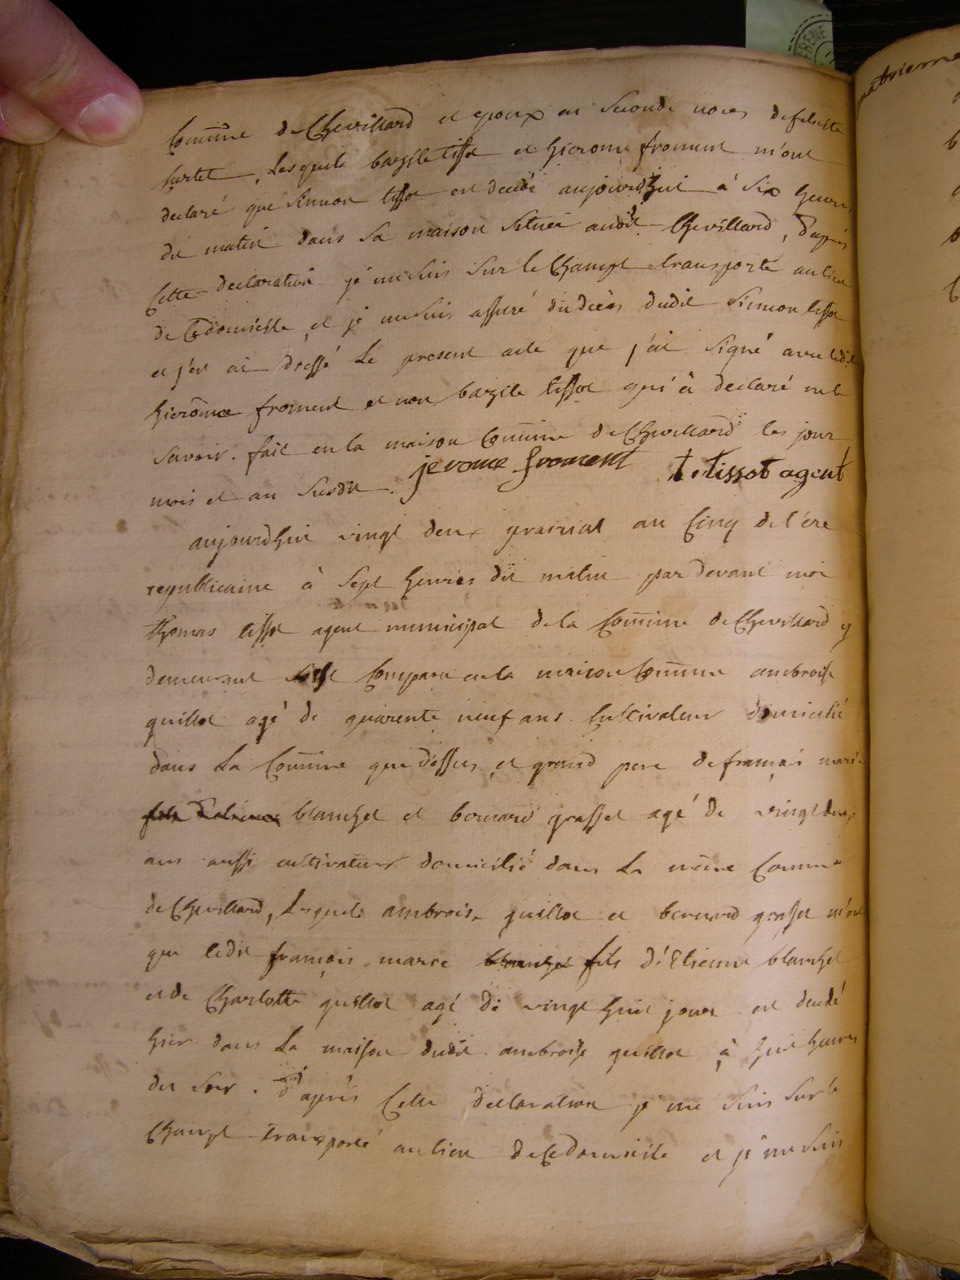 Comm̃ne de Chevillard et epoux en seconde noces de feliste
surtet, Lesquels bazile tissot et hierome froment m'ont
declaré que Simon tissot est decédé aujourdhui à six heures
du matin dans sa maison située audit Chevillard, D'après
Cette declaration je me suis sur le Champt transporté au lieu
de Ce domicille, et je me suis assuré du décès dudit Simon tissot
et j'en ai dressé Le present acte que j'ai signé avec ledit
hierôme froment et non bazile tissot qui à declaré ne le
savoir. fait en la maison Com̃une de Chevillard les jour
mois et an susdit. jerome froment t tissot agent
aujourdhui vingt deux prairial an Cinq de l'ére
republicaine à sept heures du matin par devant moi
thomas tissot agent municipal de la Com̃une de Chevillard y
demeurant est Comparu en la maison Com̃une ambroise
guillot agé de quarente neuf ans Cultivateur domicilié
dans La Com̃une que dessus, et grand pere de françoi marie
blanchet et bernard grasset agé de vingt deux
ans aussi cultivateur domicilié dans La même Commune
de Chevillard, Lesquels ambroise guillot et bernard grasset m'ont
que ledit françois marie fils d'Etienne blanchet
et de Charlotte guillot agé de vingt huit jours est decedé
hier dans La maison dudit ambroise guillot à huit heures
du soir. D'après Cette declaration je me suis sur le
Champt transporté au lieu de Ce domicille et je me suis